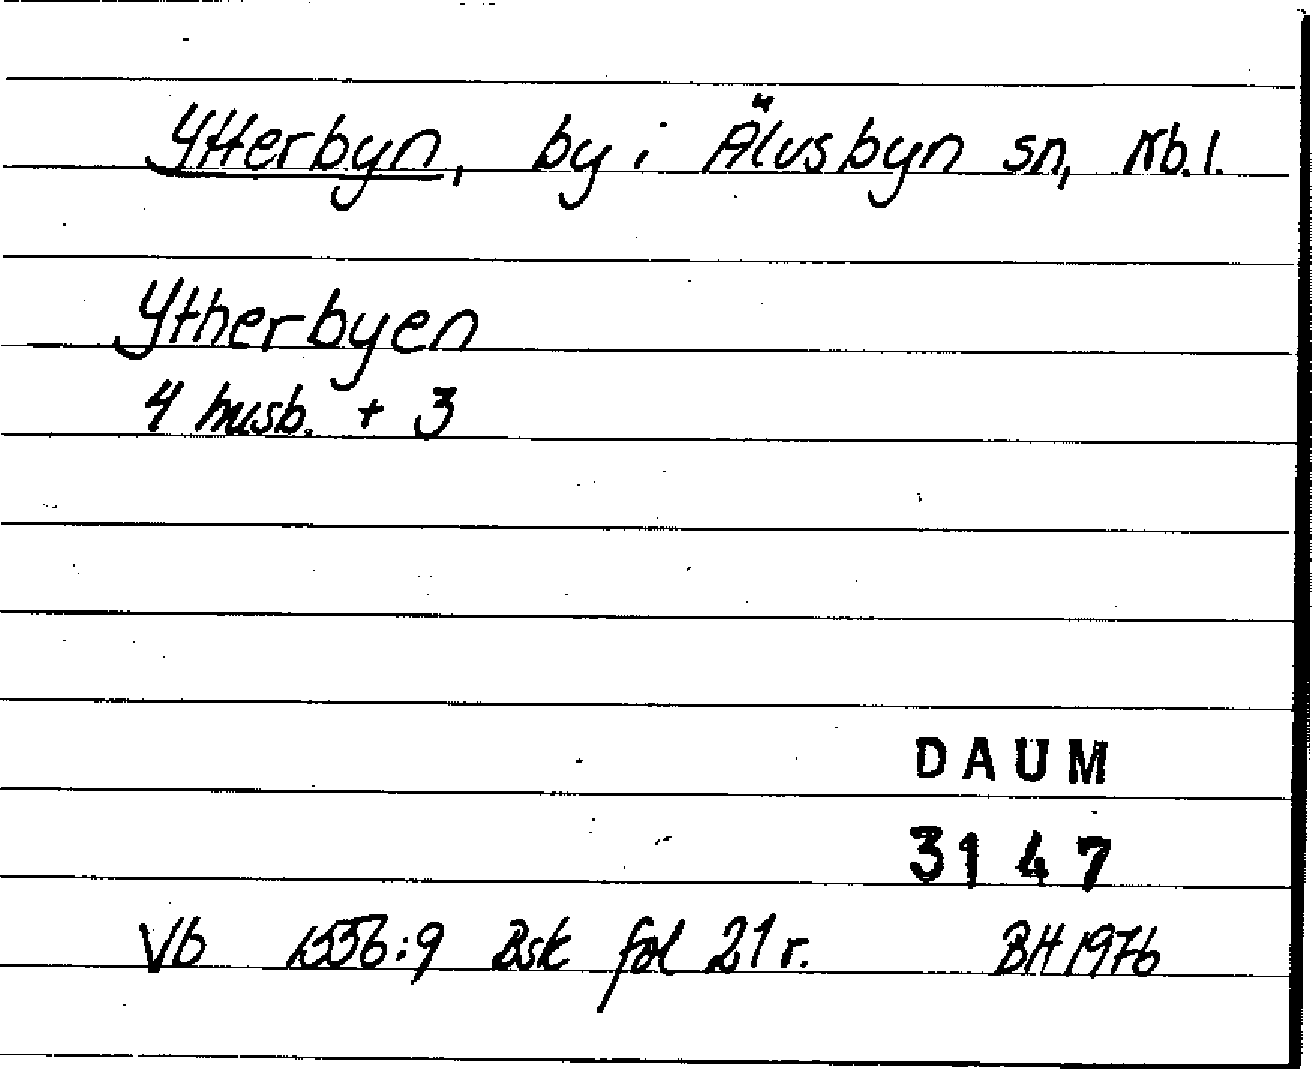 Ytterbyn, by i Älvsbyn sn, Nb.l.
Ytherbyen
4 husb. + 3
DAUM
3147
Vb 1556:9 Bsk fol 21 r. BH 1976